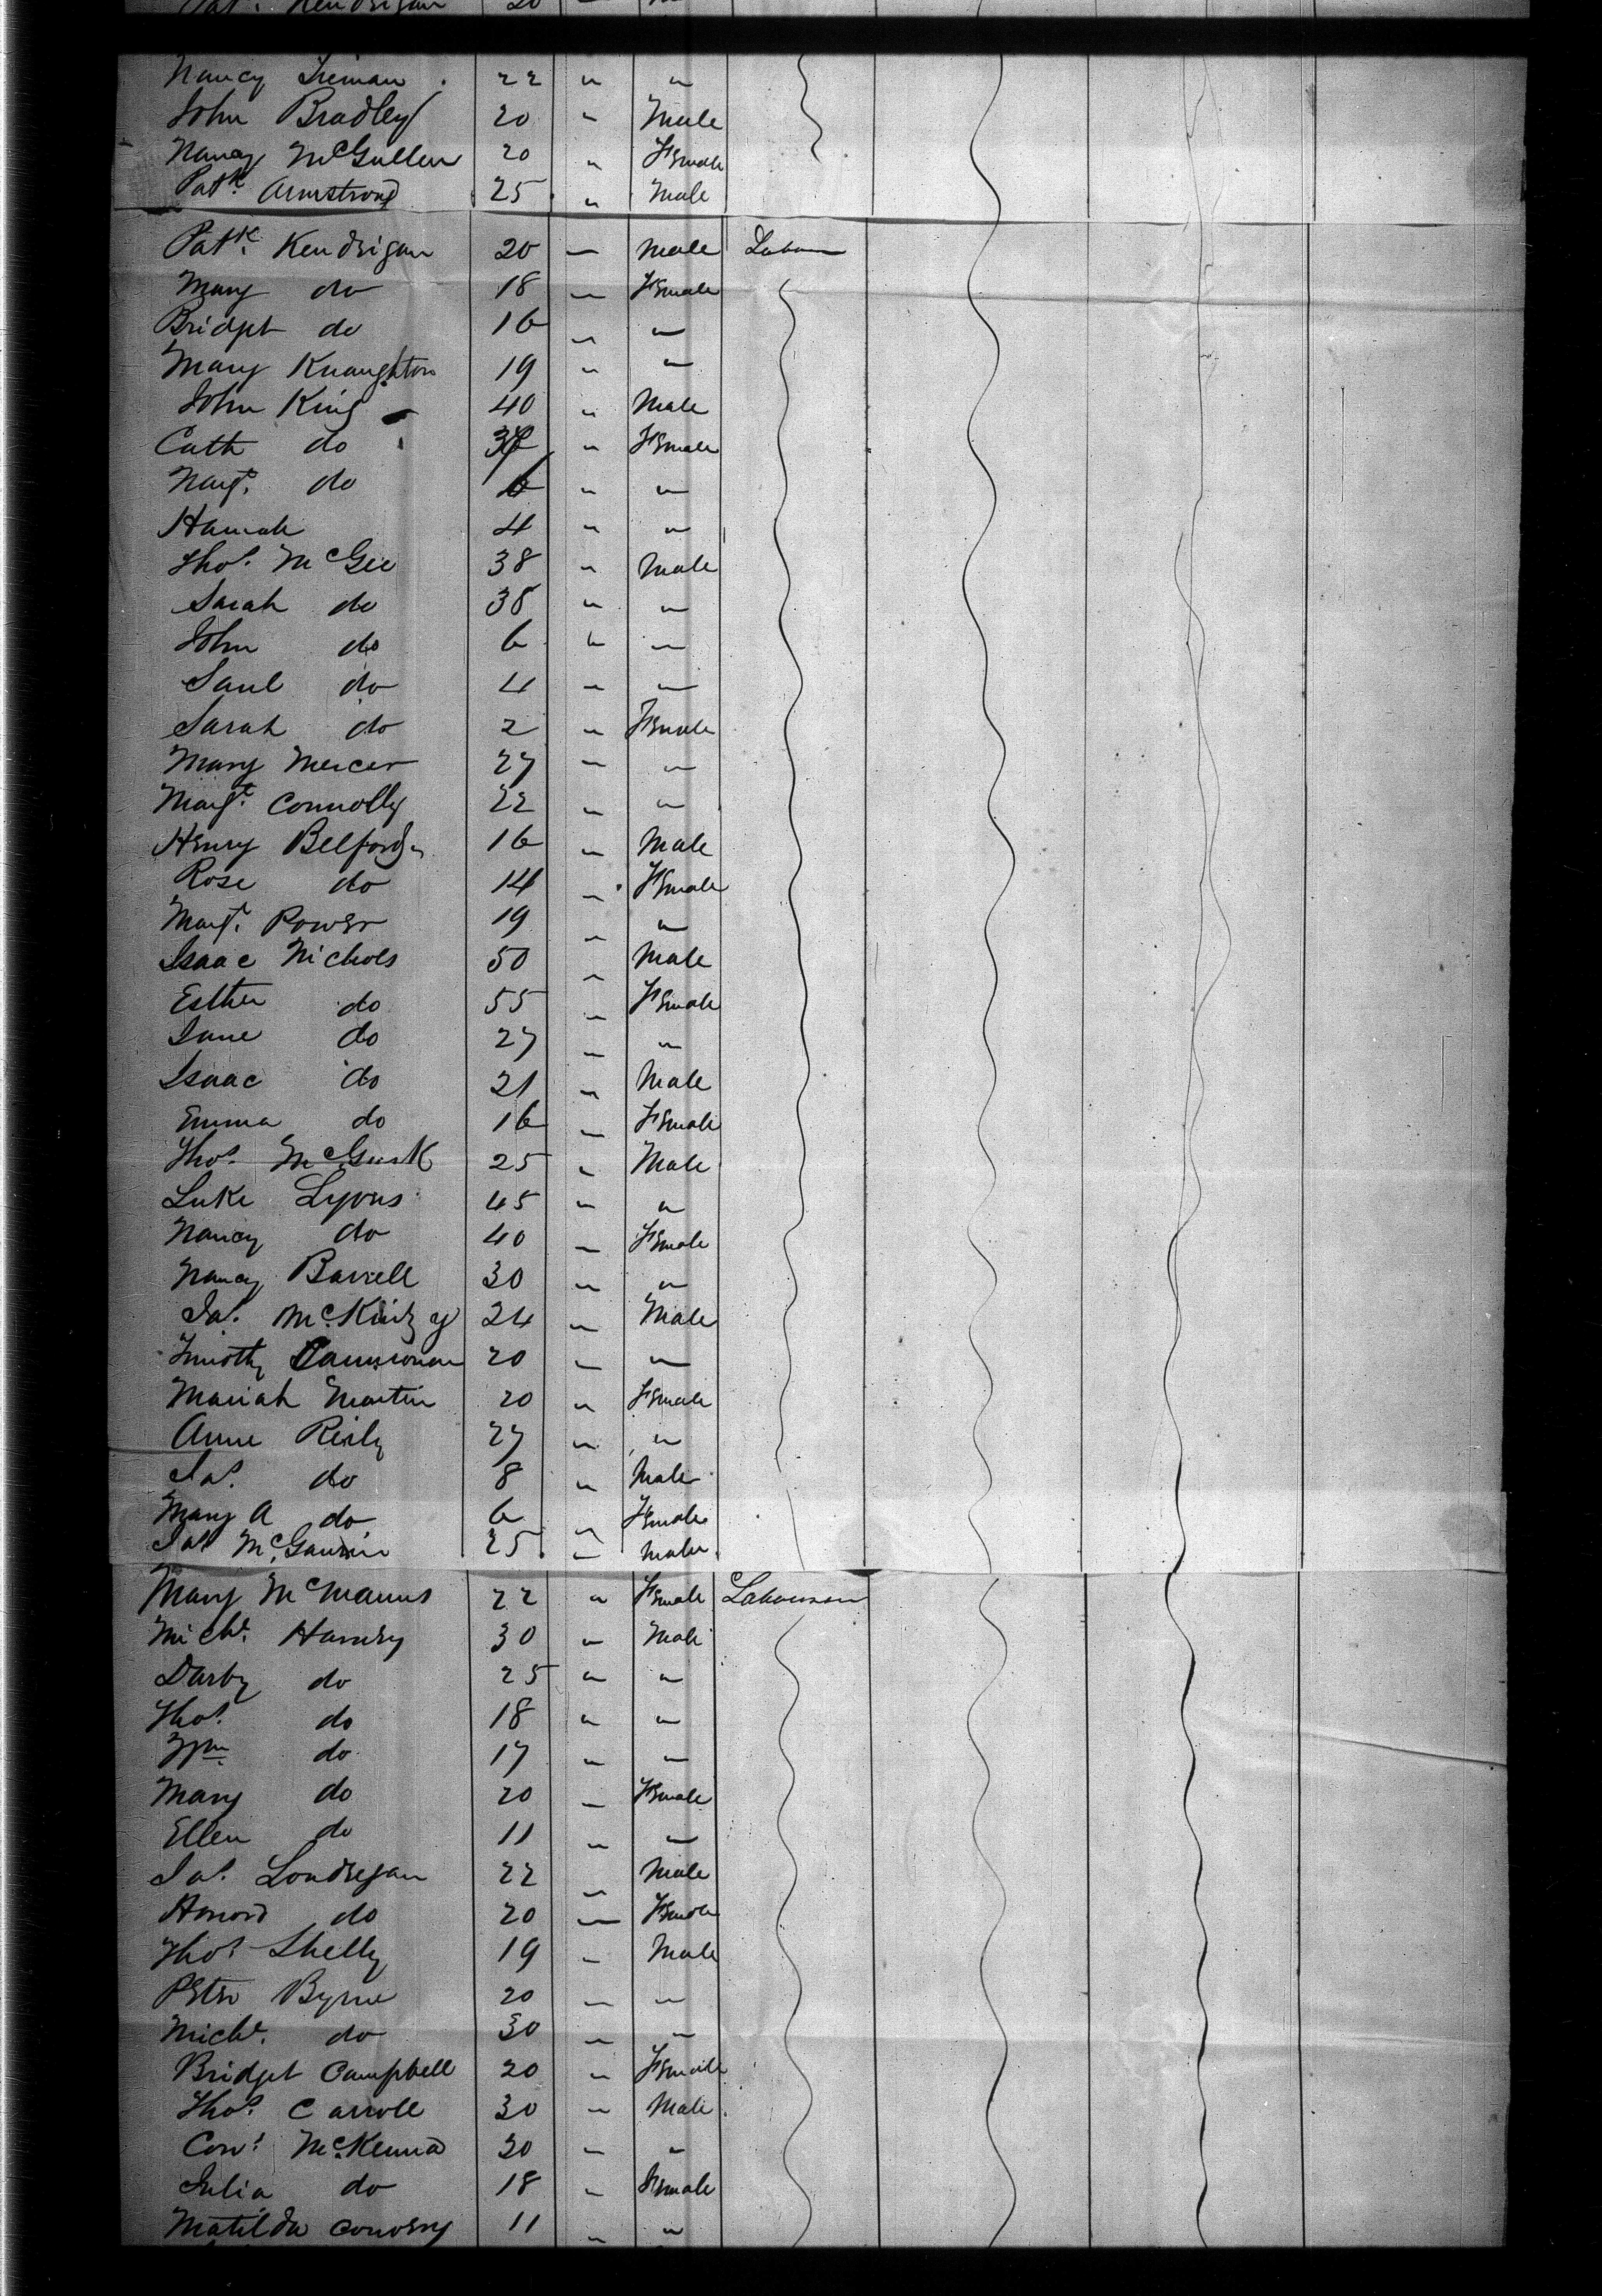 Patk. Kendrigan 20 " M
Nancy 22 " "
John Bradley 20 " Male
Nancy McGullen 20 " Female
Patk. Armstrong 25 " Male
Patk. Kendrigan 20 " Male Labour
Mary do 18 " Female
Bridget do 16 " "
Mary Knaughton 19 " "
John King 40 " Male
Cath do " Female
Margt. do 6 " "
Hannah 4 " "
Thos. McGee 38 " Male
Sarah do 38 " "
John do 6 " "
Saul do 4 " "
Sarah do 2 " Female
Mary Mercer 27 " "
Margt. Connolly 22 " "
Henry Belford 16 " Male
Rose do 14 " Female
Margt. Power 19 " "
Isaac Nichols 50 " Male
Esther do 55 " Female
Jane do 27 " "
Isaac do 21 " Male
Emma do 16 " Female
Thos. McGurk 25 " Male
Luke Lyons 45 " "
Nancy do 40 " Female
Nancy Barrell 30 " "
Jas. McKinzy 24 " Male
Timothy 20 " "
Mariah Martin 20 " Female
Anne Reily 27 " "
Jas. do 8 " Male
Mary A do 6 " Female
Jas McGavrin 25 " Male
Mary McManus 22 " Female Labourers
Michl. Harvey 30 " Male
Darby do 25 " "
Thos. do 18 " "
Wm. do 17 " "
Mary do 20 " Female
Ellen do 11 " "
Jas. Londregan 22 " Male
Honord do 20 " Female
Thos Shelly 19 " Male
Peter Byrne 20 " "
Michl. do 30 " "
Bridget Campbell 20 " Female
Thos. Carroll 30 " Male
Cons. McKenna 20 " "
Julia do 18 " Female
Matilda Conovry 11 " "